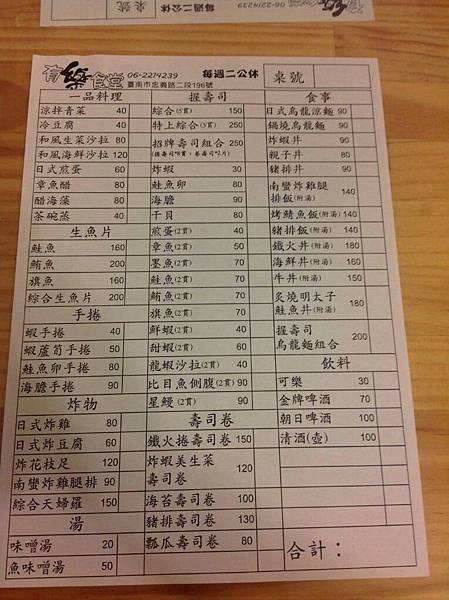 有樂食堂 06-2214239 每週二公休 桌號
臺南市忠義路二段196號
一品料理
涼拌青菜 40
冷豆腐 40
和風生菜沙拉 80
和風海鮮沙拉 120
日式煎蛋 60
章魚醋 80
醋海藻 80
茶碗蒸 40
生魚片
鮭魚 160
鮪魚 200
旗魚 160
綜合生魚片 200
手捲
蝦手捲 40
蝦蘆筍手捲 50
鮭魚卵手捲 80
海膽手捲 90
炸物
日式炸雞 80
日式炸豆腐 60
炸花枝足 120
南蠻炸雞腿排 90
綜合天婦羅 150
湯
味噌湯 20
魚味噌湯 50
握壽司
綜合(5貫) 150
特上綜合(5貫) 250
招牌壽司組合 250
(握壽司*8貫，卷壽司*2片)
炸蝦 30
鮭魚卵 80
海膽 90
干貝 80
煎蛋(2貫) 40
章魚(2貫) 50
墨魚(2貫) 70
鮭魚(2貫) 70
鮪魚(2貫) 70
旗魚(2貫) 70
鮮蝦(2貫) 40
甜蝦(2貫) 60
龍蝦沙拉(2貫) 40
比目魚側腹(2貫) 90
星鰻(2貫) 90
壽司卷
鐵火捲壽司卷 150
炸蝦美生菜
壽司卷 120
海苔壽司卷 100
豬排壽司卷 130
瓢瓜壽司卷 80
食事
日式烏龍涼麵 90
鍋燒烏龍麵 90
炸蝦丼 90
親子丼 80
豬排丼 90
南蠻炸雞腿
排飯(附湯) 140
烤鯖魚飯(附湯) 140
豬排飯(附湯) 140
鐵火丼(附湯) 180
海鮮丼(附湯) 160
牛丼(附湯) 150
炙燒明太子
鮭魚丼(附湯) 180
握壽司
烏龍麵組合 200
飲料
可樂 30
金牌啤酒 70
朝日啤酒 100
清酒(壺) 100
合計：